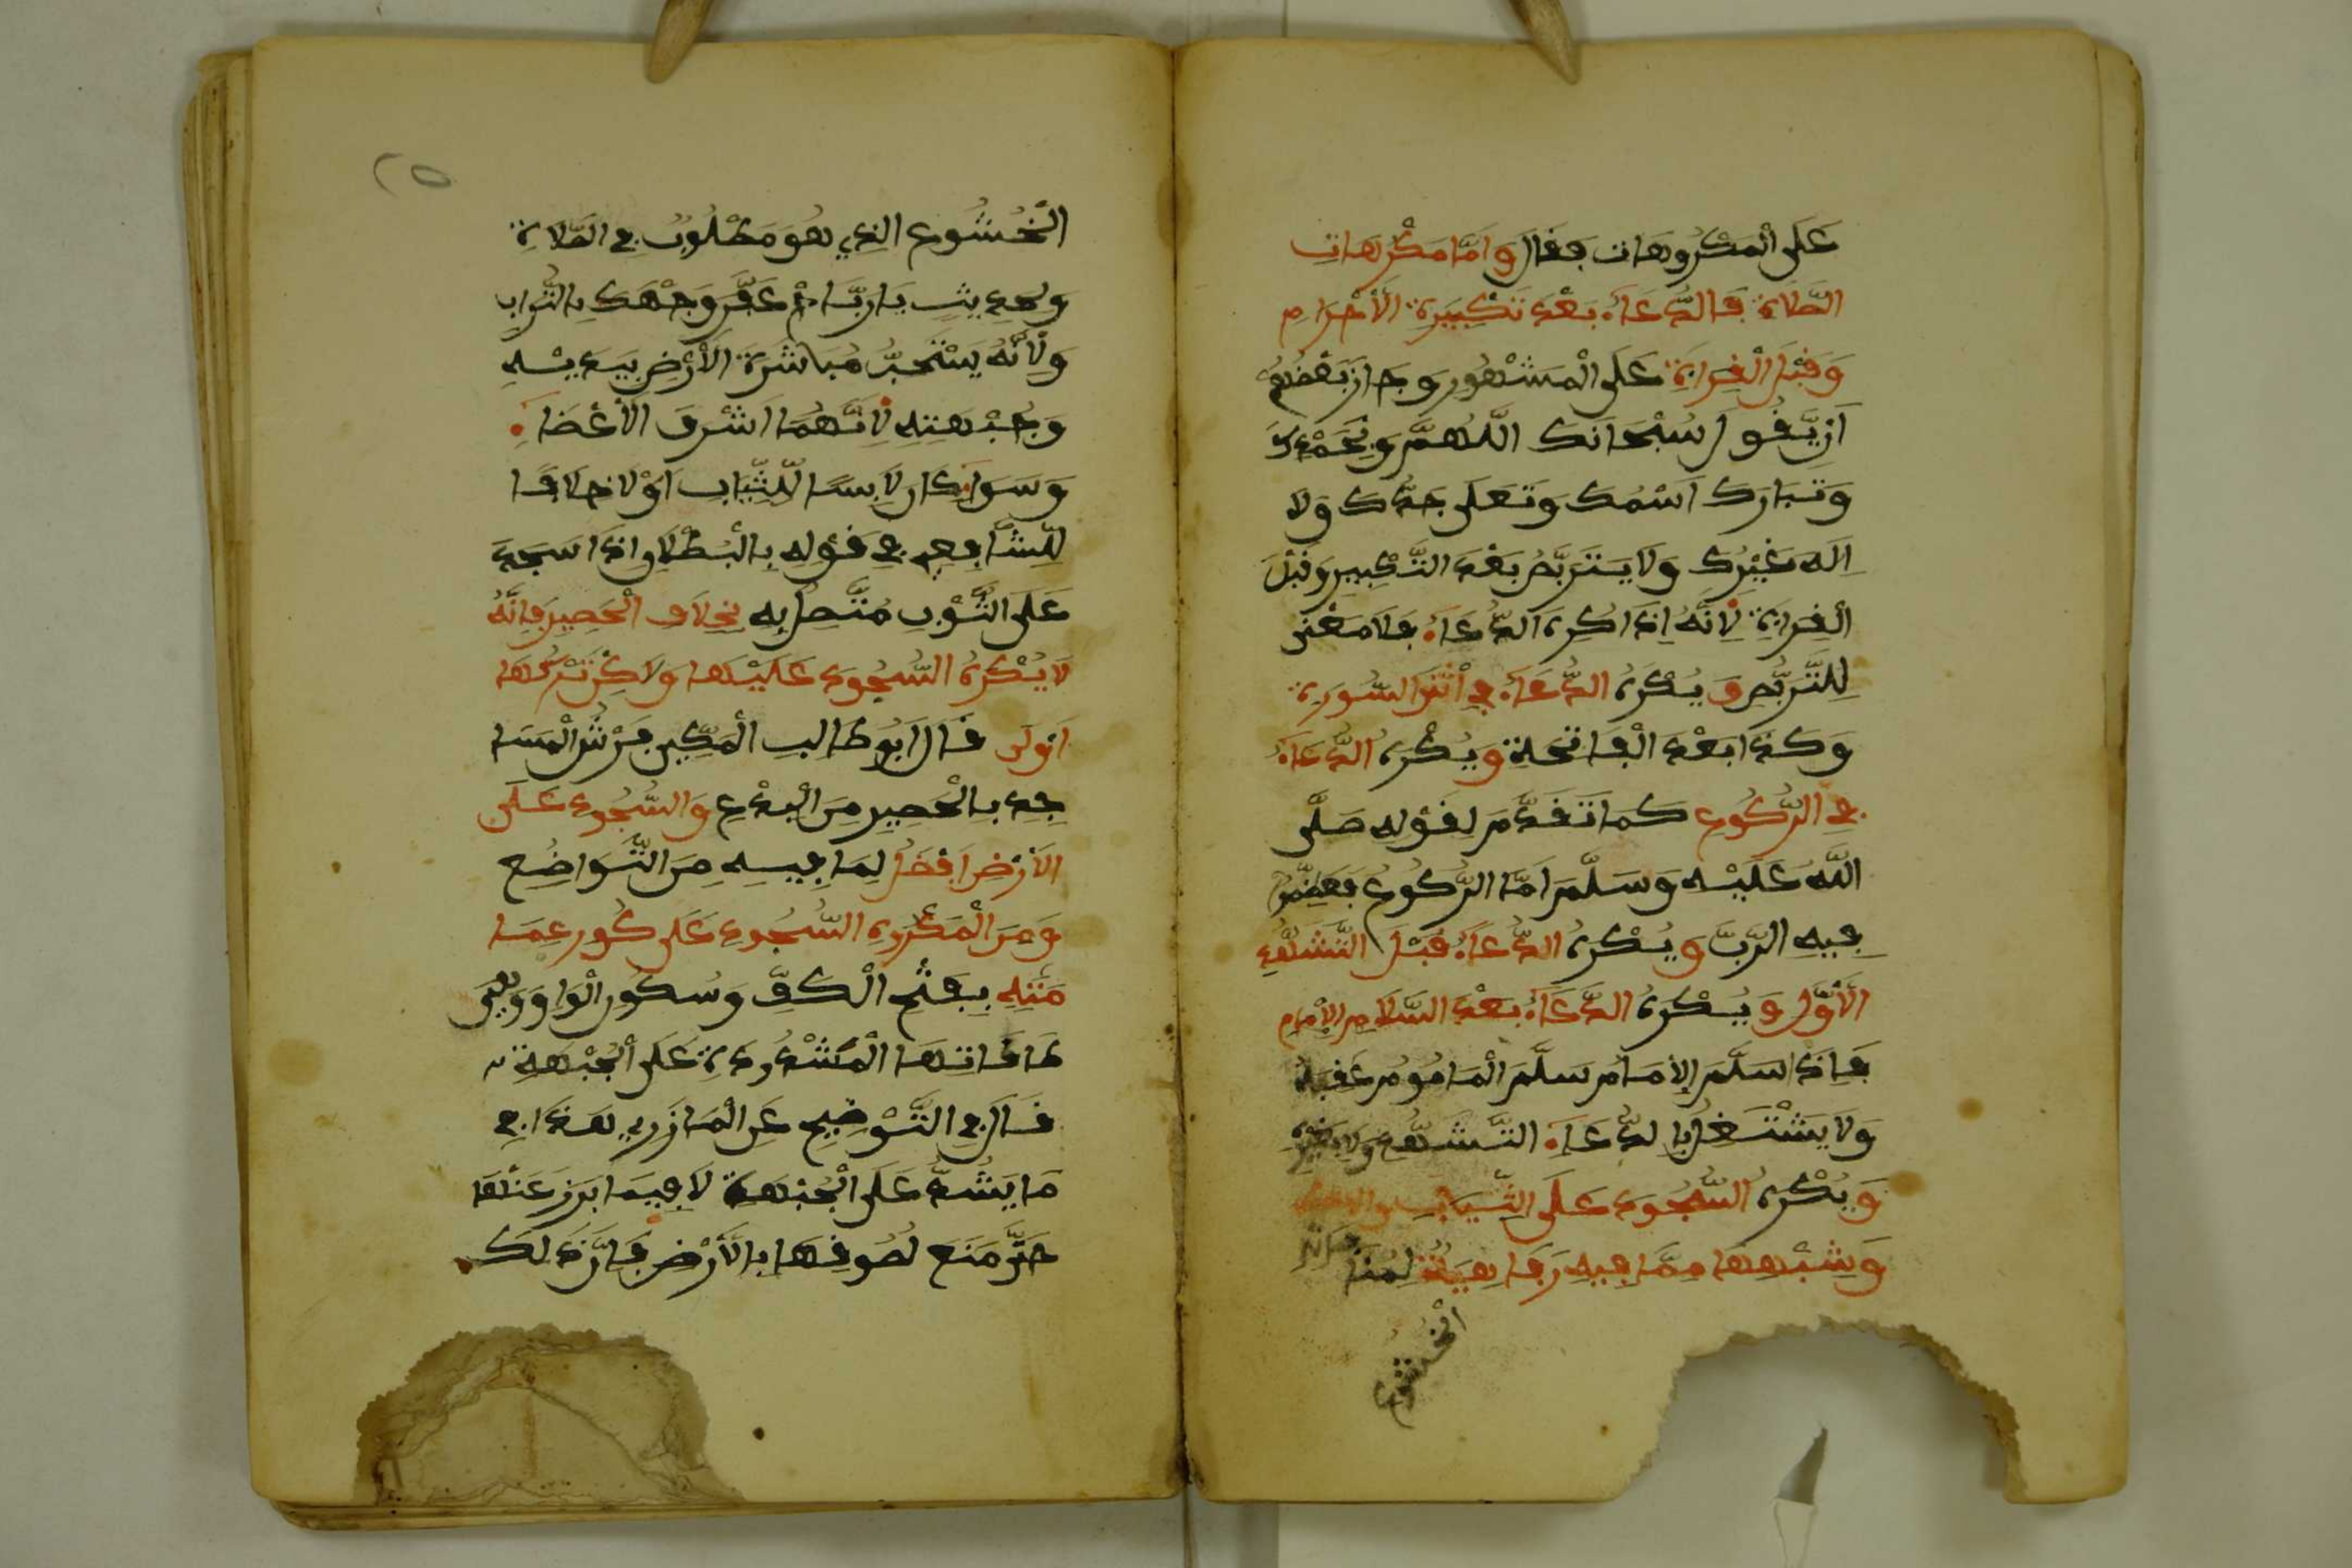 عَلَى الْمَكْرُوهَات فَقَالَ وَامَّا مَكْرُهَات
الصَّلاة فَالدُّعَاءُ بَعْدَ تَكْبِيرَةِ الْأَحْرَامِ
وَقَبْلَ الْقِرَاءَةِ عَلَى الْمَشْهُورِ وَجَازَ بَعْضُهُ
اَنْ يَّقُولَ سُبْحَانَكَ اللَّهُمَّ وَبِحَمْدِكَ
وَتَبَارَكَ اَسْمُكَ وَتَعَلَى جَدُّكَ وَلَا
اِلَهَ غَيْرُكَ وَلَا يَتَرَبَّصُ بَعْدَ التَّكْبِيرِ وَقَبْلَ
الْقِرَاءَةِ لِاَنَّهُ اِذَا كُرِهَ الدُّعَاءُ فَلَا مَعْنَى
لِلتَّرَبُّصِ وَيُكْرَهُ الدُّعَاءُ فِي اَثْنَا السُّورَةِ
وَكَذَا بَعْدَ الْفَاتِحَةِ وَيُكْرَهُ الدُّعَاءُ
فِي الرُّكُوعِ كَمَا تَقَدَّمَ لِقَوْلِهِ صَلَّى
اللَّهُ عَلَيْهِ وَسَلَّمَ اَمَّا الرُّكُوعُ فَعَظِّمُوا
فِيهِ الرَّبَّ وَيُكْرَهُ الدُّعَاءُ قَبْلَ التَّشَهُّدِ
الْأَوَّلِ وَيُكْرَهُ الدُّعَاءُ بَعْدَ السَّلَامِ الْإِمَامِ
فَإِذَا سَلَّمَ الْإِمَامُ سَلَّمَ الْمَامُومُ عَقِبَهُ
وَلَا يَشْتَغِلُ بِالدُّعَاءِ التَّشَهُّدِ وَلَا بِغَيْرِهِ
وَيُكْرَهُ السُّجُودُ عَلَى الثِّيَابِ
وَشِبْهِهَا مِمَّا فِيهِ رَفَاهِيَةٌ
الْخُشُوع
٢٥
الْخُشُوعِ الَّذِي هُوَ مَطْلُوبٌ فِي الصَّلَاةِ
وَلِحَدِيثِ يَا رَبَّاحُ عَفِّرْ وَجْهَكَ بِالتُّرَابِ
وَلِأَنَّهُ يَسْتَحِبُّ مُبَاشَرَةُ الْأَرْضِ بِيَدَيْهِ
وَجُبْهَتِهِ لِاَنَّهُمَا اَشْرَفُ الْأَعْضَاءِ
وَسَوَاءٌ كَانَ لَابِسًا لِّلثِّيَابِ اَوْ لَا خِلَافًا
لِلشَّافِعِي فِي قَوْلِهِ بِالْبُطْلَانِ اِذَا سَجَدَ
عَلَى الثَّوْبِ مُتَّصِلٍ بِهِ بِخِلَافِ الْحَصِيرِ فَإِنَّهُ
لَا يُكْرَهُ السُّجُودُ عَلَيْهَا وَلَاكِنْ تَرْكُهَا
اَوْلَى قَالَ اَبُو طَالِب الْمَكِّي فَرْشُ الْمَسَا
جِدِ بِالْحَصِيرِ مِنَ الْبِدْعِ وَالسُّجُودُ عَلَى
الْأَرْضِ اَفْضَلُ لِمَا فِيهِ مِنَ التَّوَاضُعِ
وَمِنَ الْمَكْرُوهِ السُّجُودُ عَلَى كُورِ عِمَا
مَتِهِ بِفَتْحِ الْكَافِ وَسُكُونِ الْوَاوِ وَهِيَ
طَاقَاتِهَا الْمَشْدُودَةِ عَلَى الْجُبْهَةِ
قَالَ فِي التَّوْضِيحِ عَنِ الْمَازَرِي هَذَا فِي
مَا يَشُدُّ عَلَى الْجُبْهَةِ لَا فِيمَا بَرَزَ عَنْهَا
حَتَّى مَنَعَ لُصُوقِهَا بِالْأَرْضِ فَإِنَّ ذَلِكَ